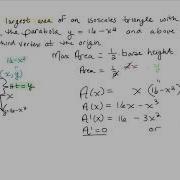 largest area of an isosceles triangle with
the parabola y = 16-x² and above
third vertex at the origin
16-x²
Max Area = 1/2 base height
Area = 1/2
(x, y)
ht = y
x
A(x) = x (16-x²)
A(x) = 16x - x³
y=16-x²
A'(x) = 16 - 3x²
A' = 0 or